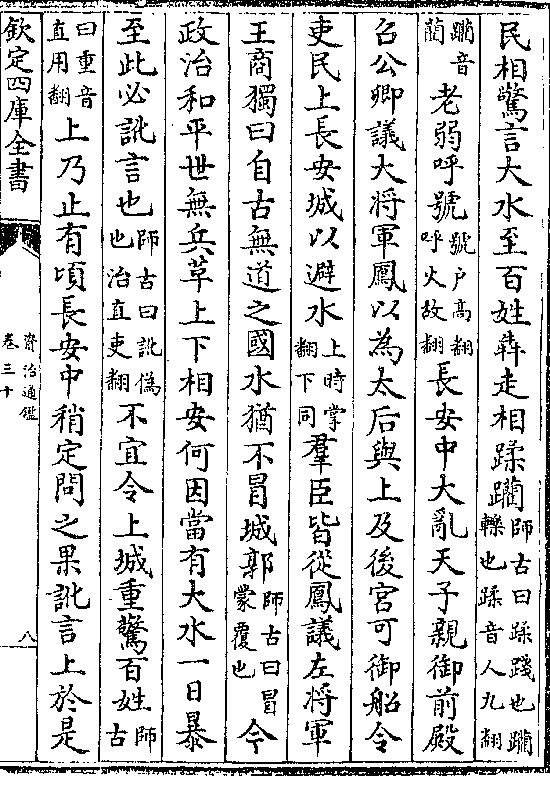 民相驚言大水至百姓犇走相蹂躪師古曰蹂踐也躪轢也蹂音人九翻
躪音藺老弱呼號號户高翻呼火故翻長安中大亂天子親御前殿
召公卿議大將軍鳳以為太后與上及後宮可御船令
吏民上長安城以避水上時掌翻下同羣臣皆從鳳議左將軍
王商獨曰自古無道之國水猶不冒城郭師古曰冒蒙覆也今
政治和平世無兵革上下相安何因當有大水一日暴
至此必訛言也師古曰訛偽也治直吏翻不宜令上城重驚百姓師古
曰重音直用翻上乃止有頃長安中稍定問之果訛言上於是
欽定四庫全書
資治通鑑
卷三十
八